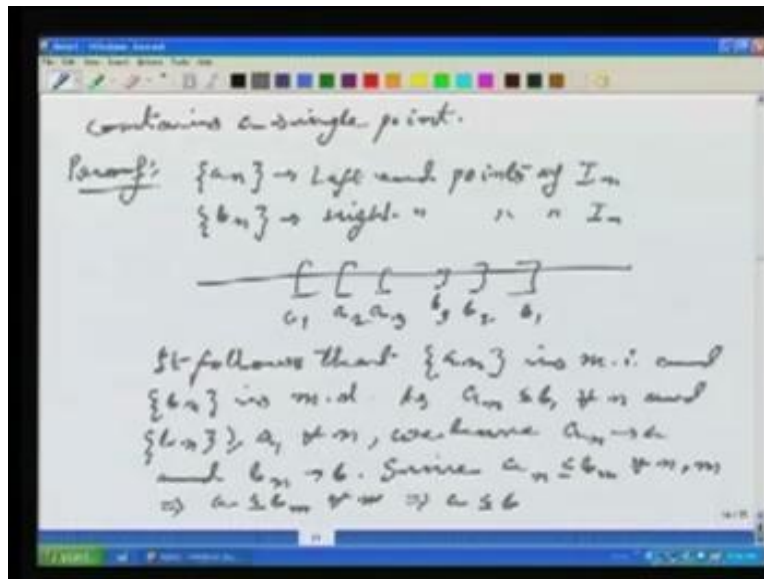 contains a single point.
Proof: {a_n} → Left end points of I_n
{b_n} → right " " " I_n
a_1 a_2 a_3 b_3 b_2 b_1
It follows that {a_n} is m.i. and
{b_n} is m.d. As a_n ≤ b_1 ∀ n and
{b_n} ≥ a_1 ∀ n, we have a_n → a
and b_n → b. Since a_n ≤ b_m ∀ n, m
⇒ a ≤ b_m ∀ m ⇒ a ≤ b